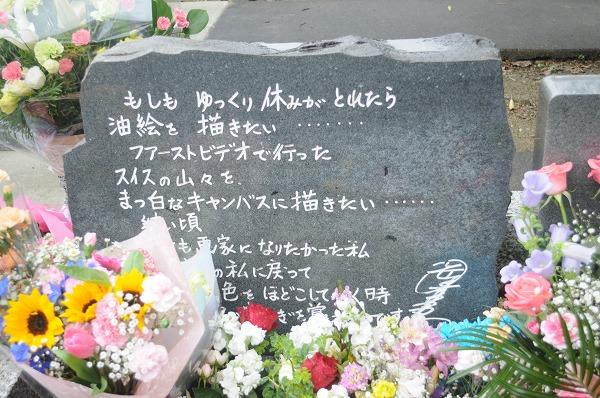 もしも ゆっくり 休みが とれたら
油絵を 描きたい ‥‥‥‥
ファーストビデオで行った
スイスの山々を、
まっ白なキャンバスに描きたい‥‥‥
幼い頃
も画家になりたかった私
の私に戻って
色をほどこして く時
です